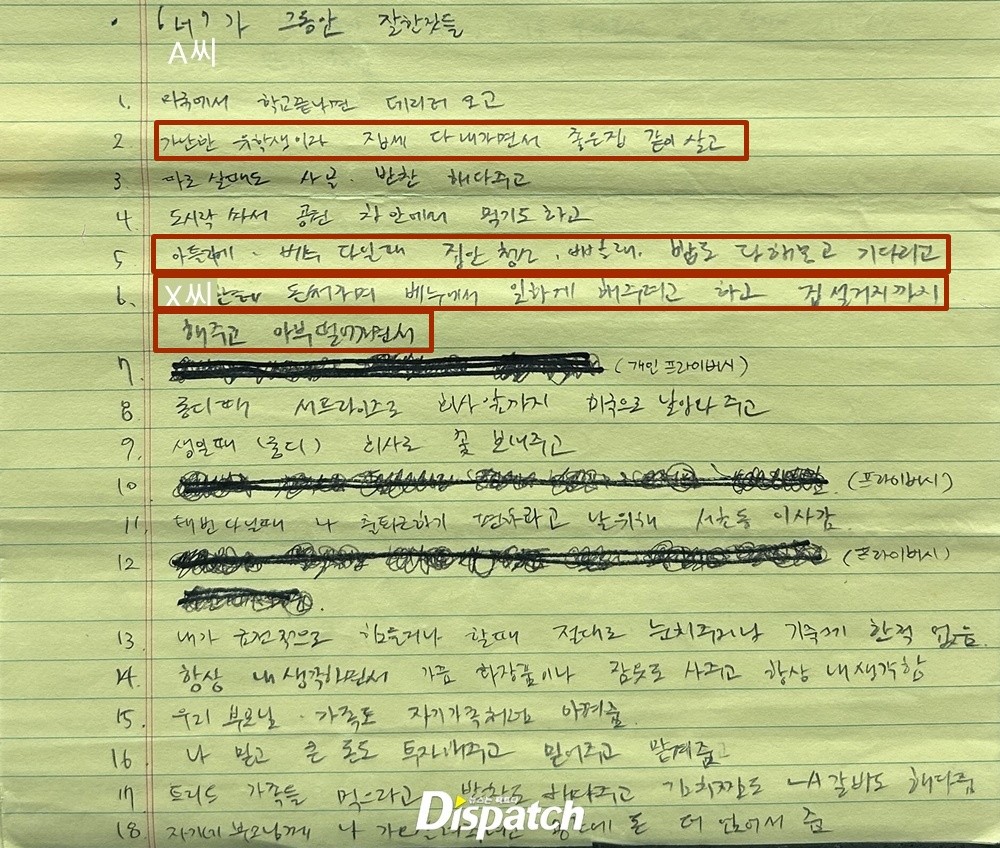 • '너'가 그동안 잘한것들
A씨
1. 미국에서 학교끝나면 데리러 오고
2 가난한 유학생이라 집세 다 내가면서 좋은집 같이 살고
3. 따로 살때도 사골. 반찬 해다주고
4 도시락 싸서 공원 차안에서 먹기도 하고
5 집안 청소, 빨래. 밥도 다해놓고 기다리고
6. X씨한테 돈써가며 베누에서 일하게 해주려고 하고 집 설거지까지
해주고 아부떨어가면서
7. (개인 프라이버시)
8 롱디때 서프라이즈로 회사앞까지 미국으로 날아와 주고
9. 생일때 (롱디) 회사로 꽃 보내주고
10 (프라이버시)
11. 다닐때 나 출퇴근하기 편하라고 날위해 서초동 이사감.
12 (프라이버시)
13. 내가 금전적으로 힘들거나 할때 절대로 눈치주거나 기죽게 한적 없음.
14. 항상 내생각하면서 가끔 화장품이나 잠옷도 사주고 항상 내생각함
15. 우리 부모님. 가족도 자기가족처럼 아껴줌.
16 나 믿고 큰 돈도 투자해주고 믿어주고 맡겨줌
17 가족들 먹으라고 반찬도 해다주고 LA갈비도 해다줌
18. 자기네 부모님께 나 돈 더 얹어서 줌
뉴스는 팩트다
Dispatch